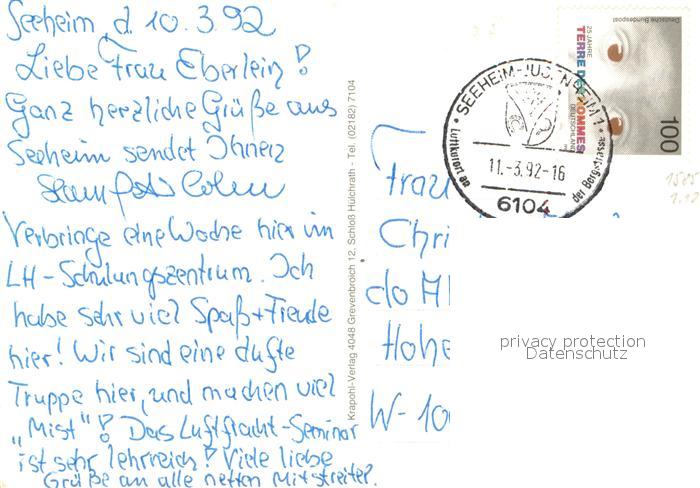 Seeheim, d. 10.3.92
Liebe Frau Eberlein!
Ganz herzliche Grüße aus
Seeheim sendet Ihnen
Verbringe eine Woche hier im
LH-Schulungszentrum. Ich
habe sehr viel Spaß + Freude
hier! Wir sind eine dufte
Truppe hier, und machen viel
„Mist"! Das Luftfracht-Seminar
ist sehr lehrreich! Viele liebe
Grüße an alle netten Mitstreiter.
Krapohl-Verlag 4048 Grevenbroich 12, Schloß Hülchrath - Tel. (02182) 7104
Frau
Chri
Hohe
W-10
SEEHEIM-JUGENHEIM 1
Luftkurort an
der Bergstrasse
11.-3.92-16
6104
Deutsche Bundespost
25 JAHRE
TERRE DES HOMMES
DEUTSCHLAND
100
privacy protection
Datenschutz